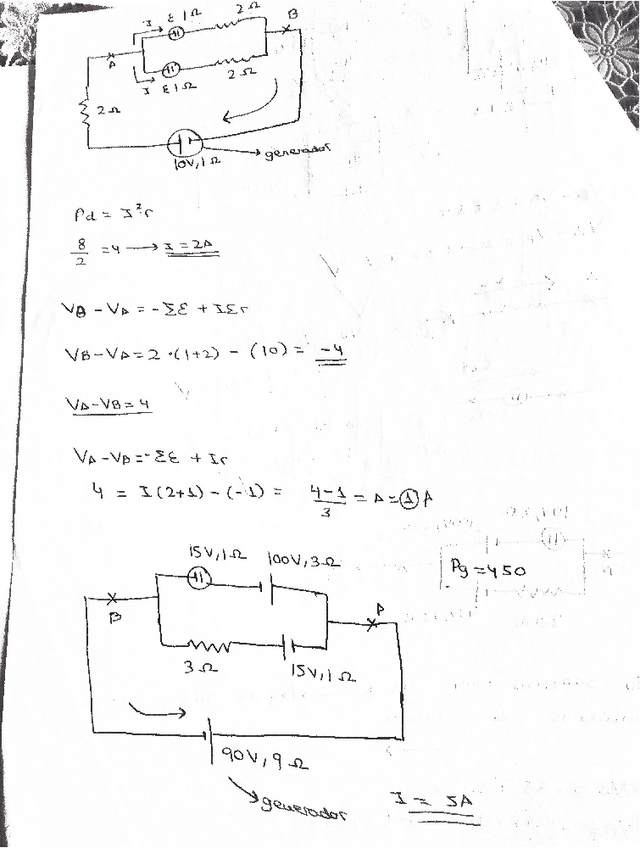 I ε 1Ω 2Ω
B
A
I ε 1Ω 2Ω
2Ω
10V, 1Ω → generador
Pd = I²r
8/2 = 4 → I = 2A
VB - VA = -Σε + IΣr
VB - VA = 2 · (1+2) - (10) = -4
VA - VB = 4
VA - VB = -Σε + Ir
4 = I(2+1) - (-1) = 4-1/3 = A = 1 A
15V, 1Ω 100V, 3Ω
Pg = 450
B A
3Ω 15V, 1Ω
90V, 9Ω
generador
I = 5A